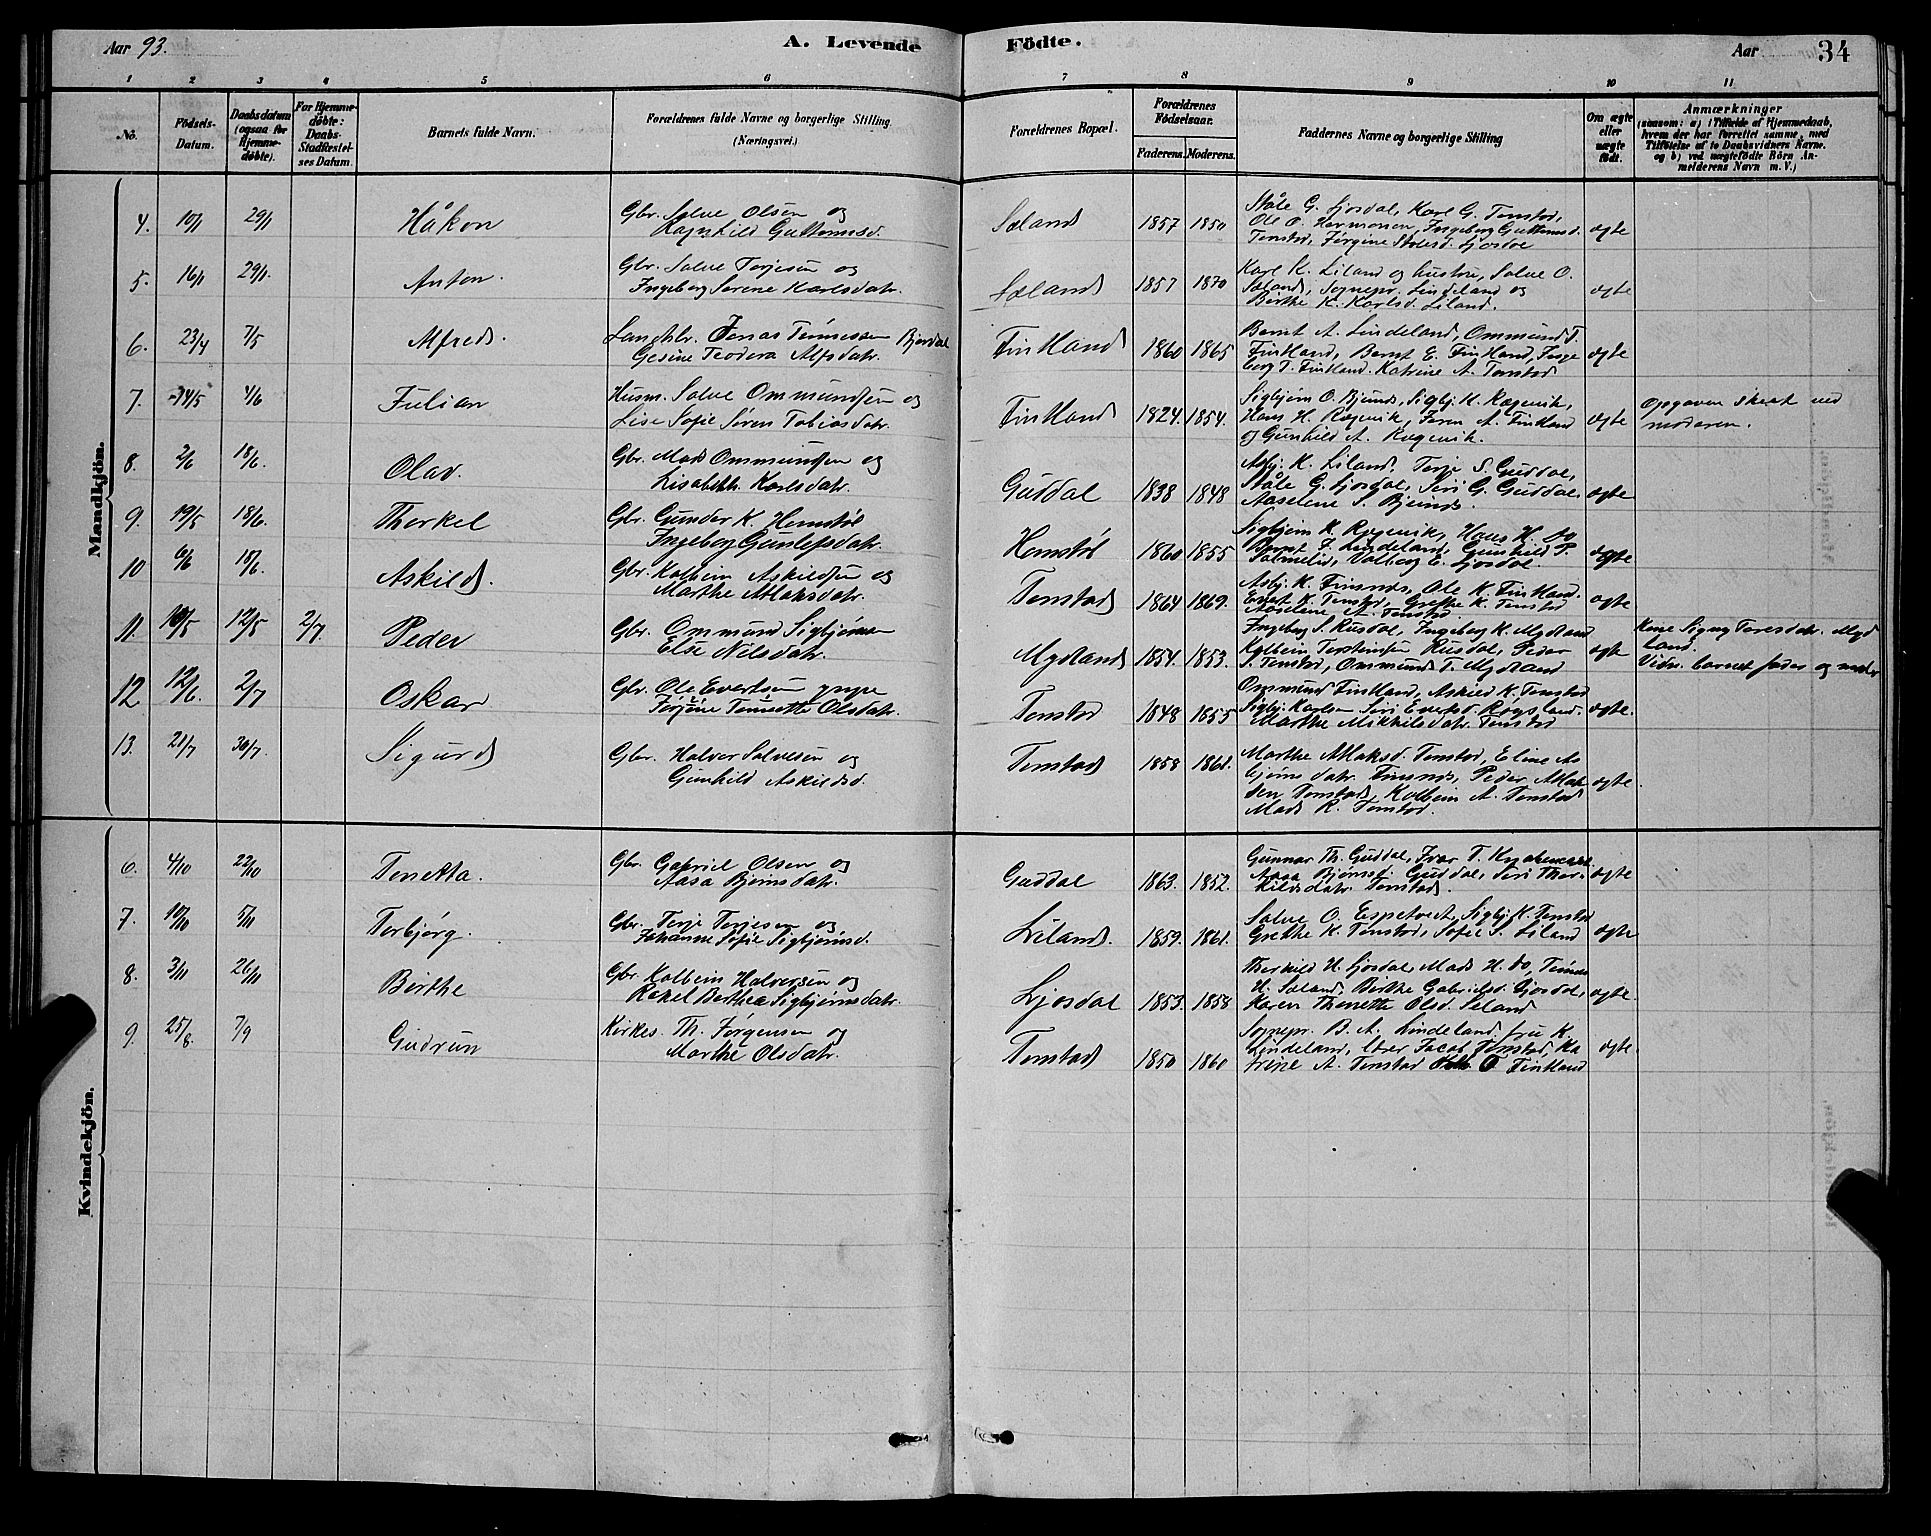 Aar 93.
A. Levende Födte.
Aar
34
1 2 3 4 5 6 7 8 9 10 11
No.
Födsels-Datum.
Daabsdatum (ogsaa for Hjemme-döbte).
For Hjemme-döbte: Daabs-Stadfæstel-ses Datum.
Barnets fulde Navn.
Forældrenes fulde Navne og borgerlige Stilling
(Næringsvei.)
Forældrenes Bopæl.
Forældrenes Födselsaar.
Faderens. Moderens.
Faddernes Navne og borgerlige Stilling
Om ægte eller uægte födt.
Anmærkninger
(saasom: a) i Tilfælde af Hjemmedaab, hvem der har forrettet samme, med Tilföielse af to Daabsvidners Navne. og b) ved uægtefödte Börn An-melderens Navn m. V.)
Mandkjön.
4. 10/1 29/1 Håkon
Gbr. Salve Olsen og
Ragnhild Guttormsd.
Sæland 1857 1850
Ståle G. Ljosdal, Karl G. Tonstad,
Ole O. Hermonson, Ingeborg Guttormsd.
Tonstad, Jørgine Stålesd. Ljosdal
ægte
5. 16/1 29/1. Anton.
Gbr. Salve Terjesen og
Ingeborg Serene Karlsdatr.
Sæland 1857 1870
Karl K. Liland og hustru, Salve O.
Sæland, Sognepr. Lindeland og
Birthe K. Karlsd. Liland.
ægte
6. 23/4 7/5 Alfred.
Landhbr. Jonas Tønnessen Bjordal
Gesine Teodora Alfsdatr.
Fintland 1860 1865
Bernt A. Lindeland, Ommund T.
Fintland, Bernt E. Fintland, Inge
borg T. Fintland. Katrine A. Tonstad
ægte
7. 14/5 4/6 Julian
Husm. Salve Ommundsen og
Lise Sofie Søren Tobiasdatr.
Fintland 1824. 1854.
Sigbjørn O. Bjunes, Sigbj. H. Rægevik,
Hans H. Rægevik, Søren A. Fintland
og Gunhild A. Rægevik.
ægte
Opgaven skeet ved
moderen.
8. 2/6 18/6. Olav.
Gbr. Mads Ommundsen og
Lisabeth Karlsdatr.
Guddal 1838 1848
Asbj. K. Liland, Terje S. Guddal,
Ståle G. Ljosdal, Siri G. Guddal,
Aaselene S. Bjunes.
ægte
9. 19/5 18/6. Thorkel
Gbr. Gunder K. Homstøl
Ingeborg Gunlefsdatr.
Homstøl 1860 1855
Sigbjørn K. Rægevik, Hans H. do
Bernt F. Lindeland, Gunhild P.
Salmelid, Valborg E. Ljosdal.
ægte
10 6/6 18/6. Askild.
Gbr. Kolbein Askildsen og
Marthe Atlaksdatr.
Tonstad 1864 1869.
Asbj. K. Finsnes, Ole K. Fintland.
Evert K. Tonstad, Grethe K. Tonstad
Aaselene A. Tonstad
ægte
11. 10/5 12/5 2/7. Peder
Gbr. Ommund Sigbjørnsen
Else Nilsdatr.
Mydland 1854. 1853.
Ingeborg S. Rusdal, Ingeborg K. Mydland
Kolbein Torstensen Rusdal, Peder
S. Tonstad, Ommund T. Mydland
ægte
Kone Signy Teresdatr. Myd
land.
Vidn. barnets fader og moder
12 12/6. 2/7 Oskar
Gbr. Ole Evertsen yngre
Jørjine Tønnette Olsdatr.
Tonstad 1848 1855
Ommund Fintland, Askild K. Tonstad
Sigbj. Karlsen Siri Evertsd. Røysland.
Marthe Mikkilsdatr. Tonstad
ægte.
13. 21/7 30/7. Sigurd
Gbr. Halvor Salvesen og
Gunhild Askildsd.
Tonstad 1858 1861.
Marthe Atlaksd. Tonstad, Eline As
bjørnsdatr. Finsnes, Peder Atlak
sen Tonstad, Kolbein A. Tonstad
Mads R. Tonstad.
ægte.
Kvindekjön.
6. 4/10 22/10 Tonetta.
Gbr. Gabriel Olsen og
Aasa Bjørnsdatr.
Guddal 1863. 1852.
Gunnar Th. Guddal, Ivar T.
Aasa Bjørnsd. Guddal, Siri Thor-
kildsdatr. Tonstad.
ægte
7. 10/10 5/11 Torbjørg.
Gbr. Terje Terjesen og
Johanne Sofie Sigbjørnsd.
Liland. 1859. 1861.
Salve O. Espetveit, Sigbj. K. Tonstad
Grethe K. Tonstad, Sofie S. Liland
ægte
8. 3/11 26/11 Børthe
Gbr. Kolbein Halvorsen og
Rakel Berthea Sigbjørnsdatr.
Ljosdal 1853. 1858
Thorkild H. Ljosdal, Mads H. do, Tønnes
H. Sæland, Birthe Gabrielsd. Ljosdal,
Karen Thonette Olsd. Sæland
ægte.
9. 25/8. 7/9 Gudrun
Kirkes. Th. Jørgensen og
Marthe Olsdatr.
Tonstad 1850 1860
Sognepr. B. A. Lindeland, fru K.
Lindeland, Lærer Jacob Tonstad, Ka
trine A. Tonstad O Fintland
ægte.